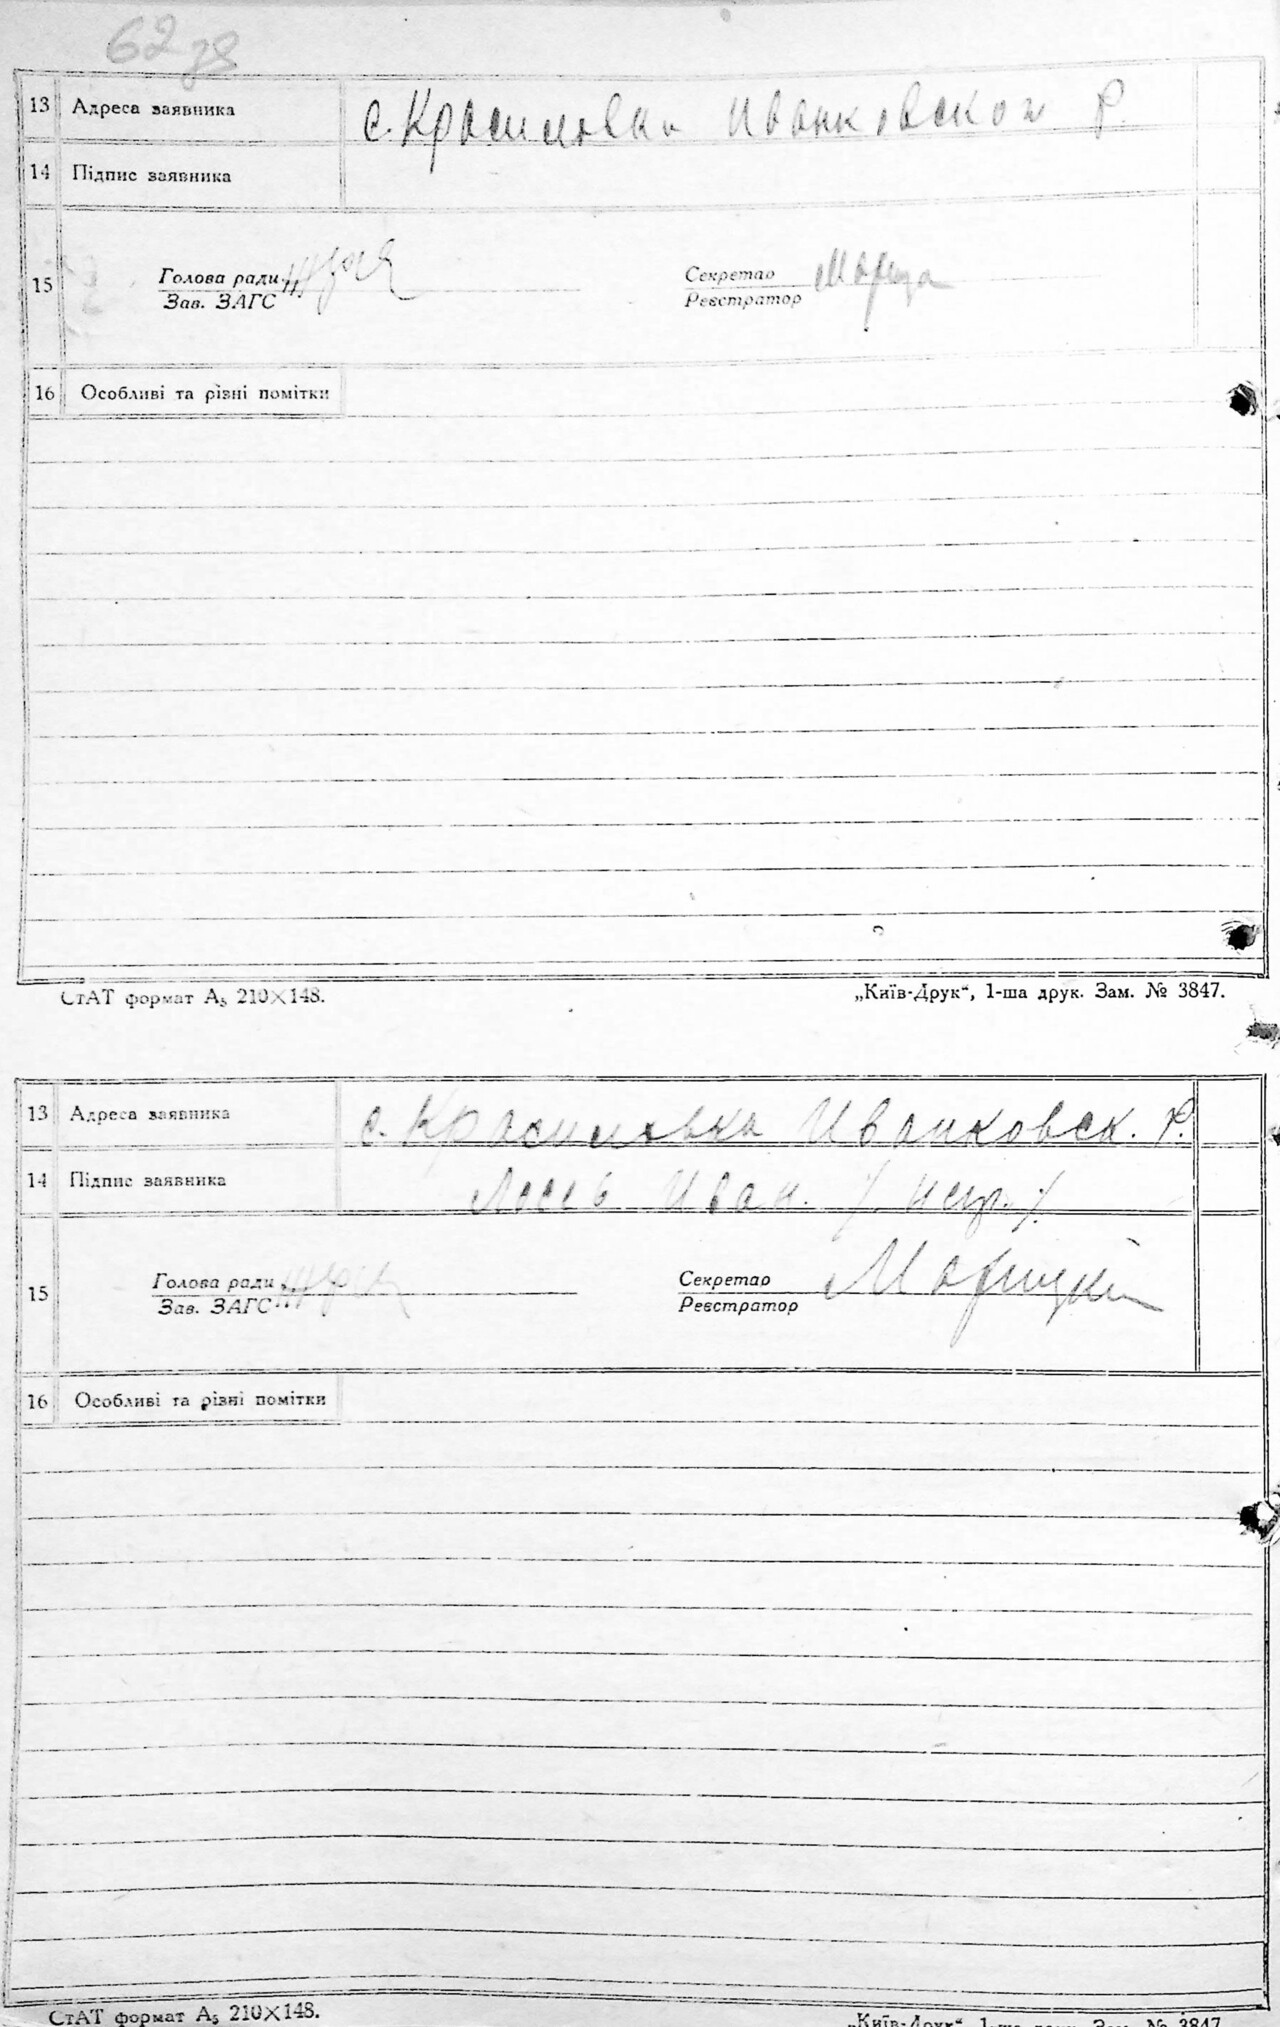 62 зв
13 Адреса заявника с. Красиловка Иванковской Р.
14 Підпис заявника
15 Голова ради Секретар
Зав. ЗАГС Реєстратор
16 Особливі та різні помітки
СтАТ формат А₅ 210×148. „Київ-Друк“, 1-ша друк. Зам. № 3847.
13 Адреса заявника с. Красиловка Иванковск. Р.
14 Підпис заявника Лось Иван. /. негр. /.
15 Голова ради Секретар
Зав. ЗАГС Реєстратор
16 Особливі та різні помітки
СтАТ формат А₅ 210×148. „Київ-Друк“, 1-ша друк. Зам. № 3847.